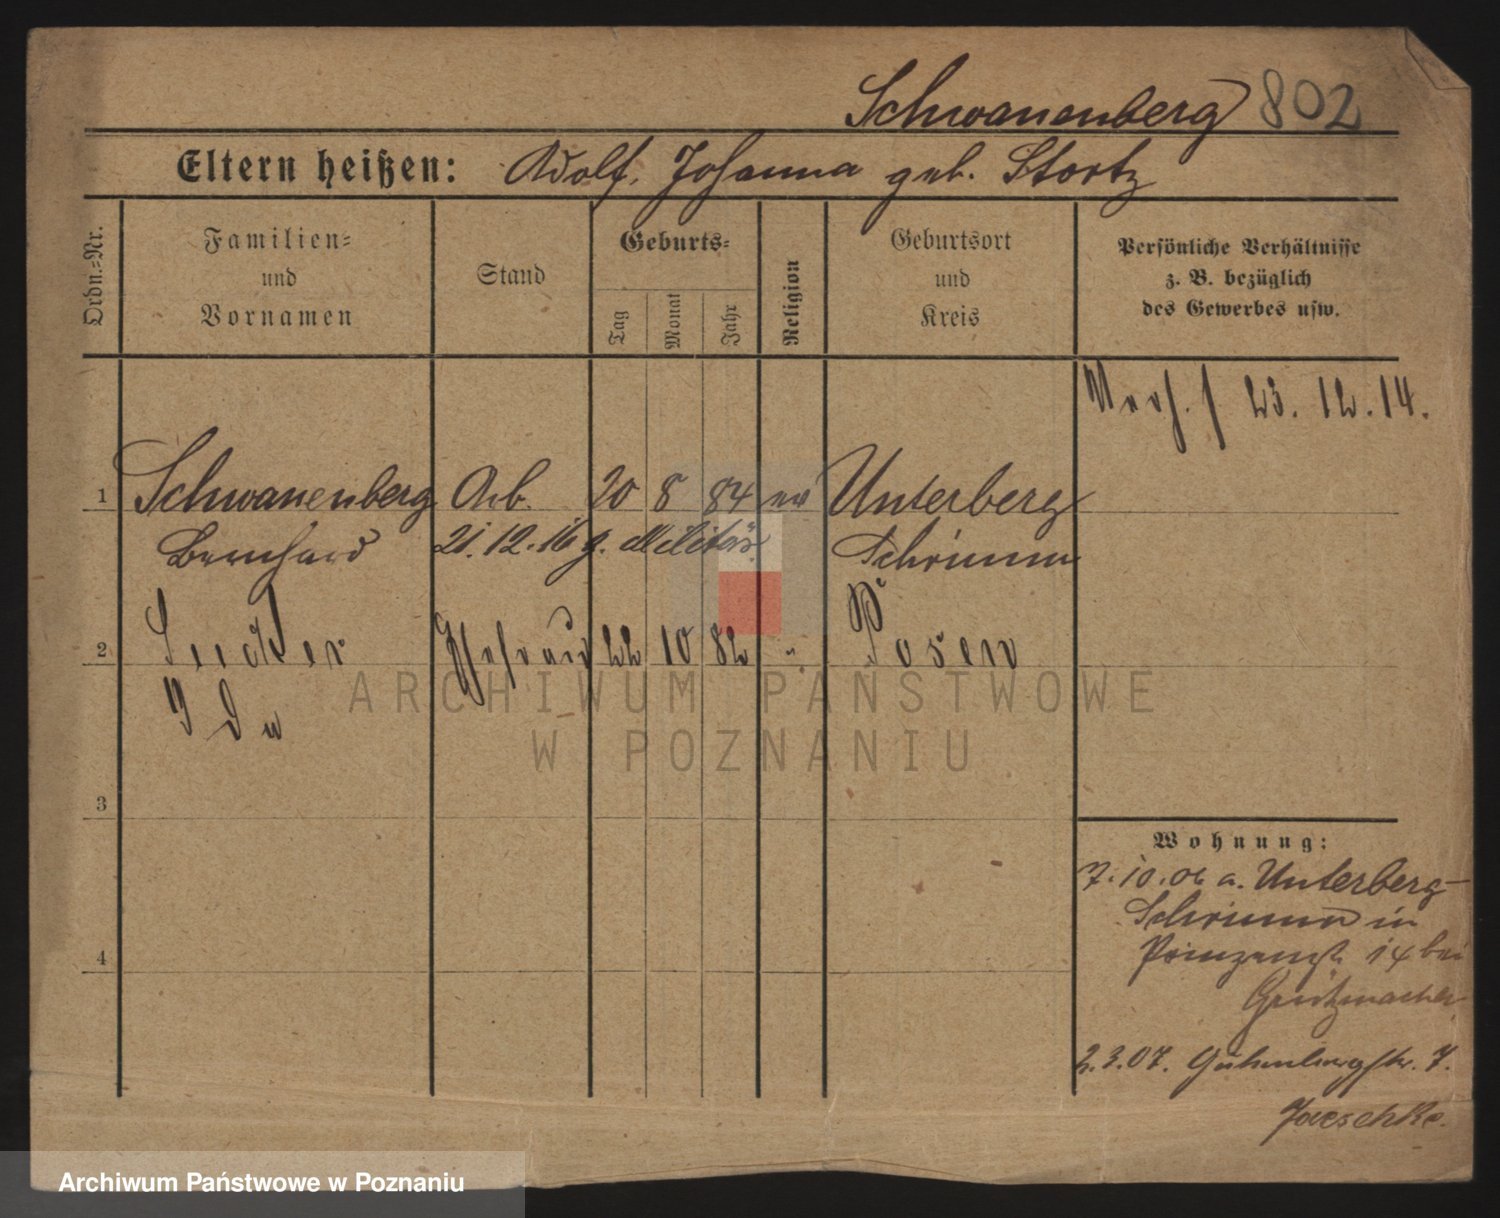 Schwanenberg 802
Eltern heißen: Adolf, Johanna geb. Stortz
Ordn.-Nr.
Familien-
und
Vornamen
Stand
Geburts-
Tag
Monat
Jahr
Religion
Geburtsort
und
Kreis
Persönliche Verhältnisse
z. B. bezüglich
des Gewerbes usw.
23. 12. 14.
1 Schwanenberg Arb. 20 8 84 ev Unterberg
Bernhard 21. 12. 16 z. Militär. Schrimm
2 Ehefrau 22 10 82 " Posen
Ida
3
4
Wohnung:
7. 10. 06 a. Unterberg-
Schrimm in
Prinzenstr. 14 bei
Grützmacher
2. 3. 07. 7.
Jaeschke.
ARCHIWUM PAŃSTWOWE
W POZNANIU
Archiwum Państwowe w Poznaniu